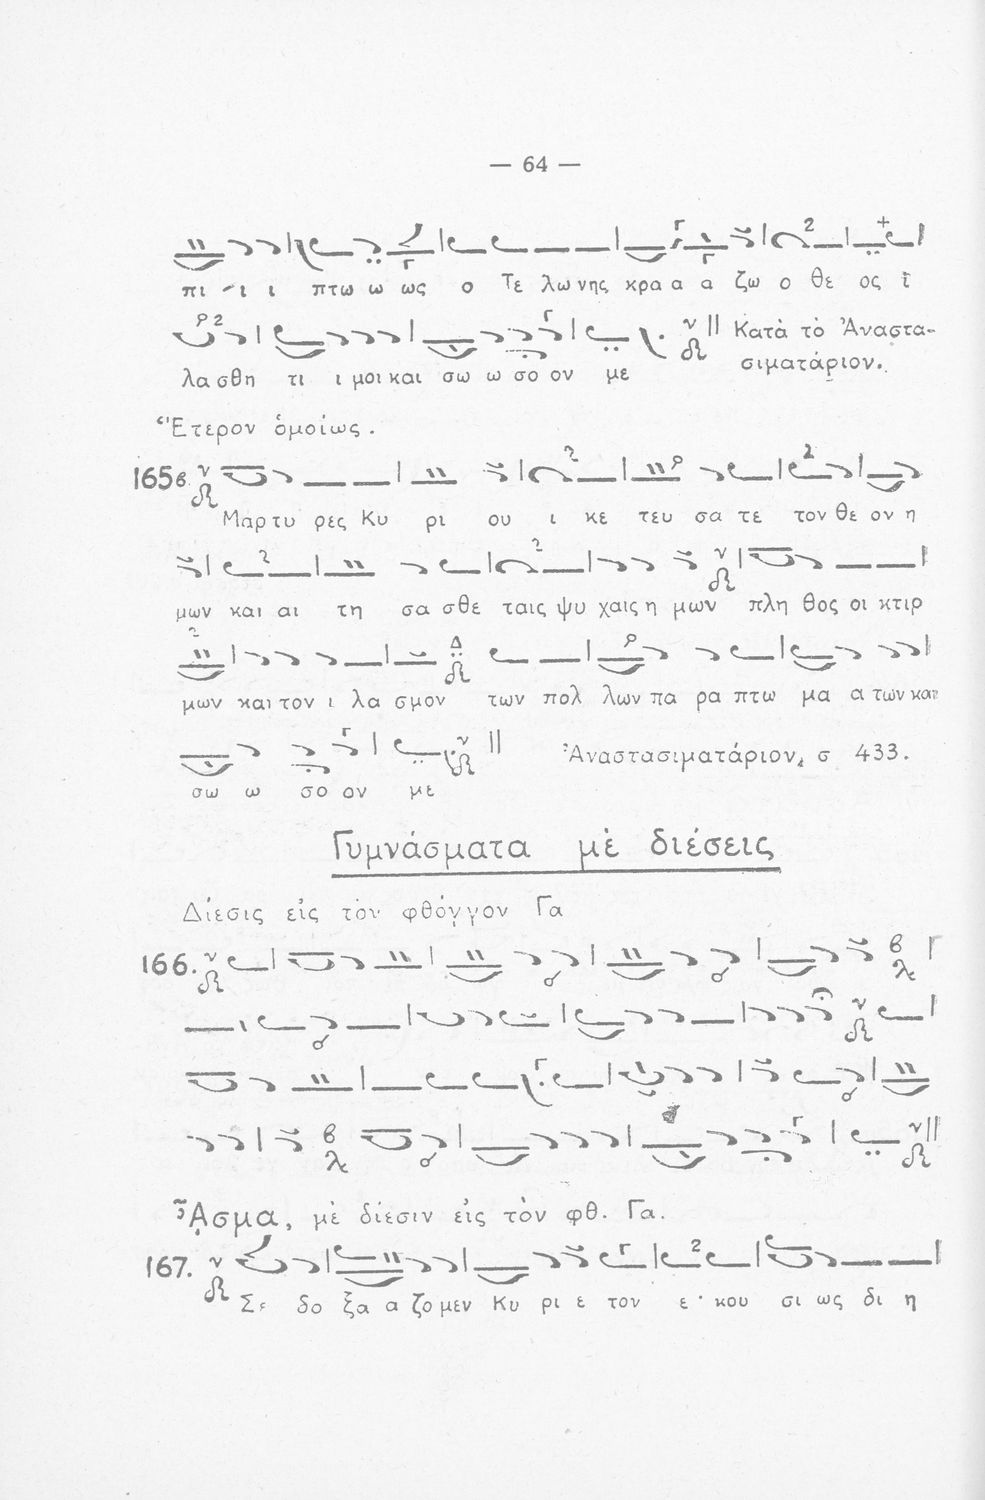 — 64 —
πι ι ι πτω ω ως ο Τε λω νης κρα α α ζω ο θε ος ῐ
λα σθη τι ι μοι και σω ω σο ον με
Κατὰ τὸ Ἀναστα-
σιματάριον.
Ἕτερον ὁμοίως.
165β.
Μαρτυ ρες Κυ ρι ου ι κε τευ σα τε τον θε ον η
μων και αι τη σα σθε ταις ψυ χαις η μων πλη θος οι κτιρ
μων και τον ι λα σμον των πολ λων πα ρα πτω μα α των και
Ἀναστασιματάριον, σ 433.
σω ω σο ον με
Γυμνάσματα μὲ διέσεις
Δίεσις εἰς τὸν φθόγγον Γα
166.
ᾎσμα, μὲ δίεσιν εἰς τὸν φθ. Γα.
167.
Σε δο ξα α ζο μεν Κυ ρι ε τον ε κου σι ως δι η